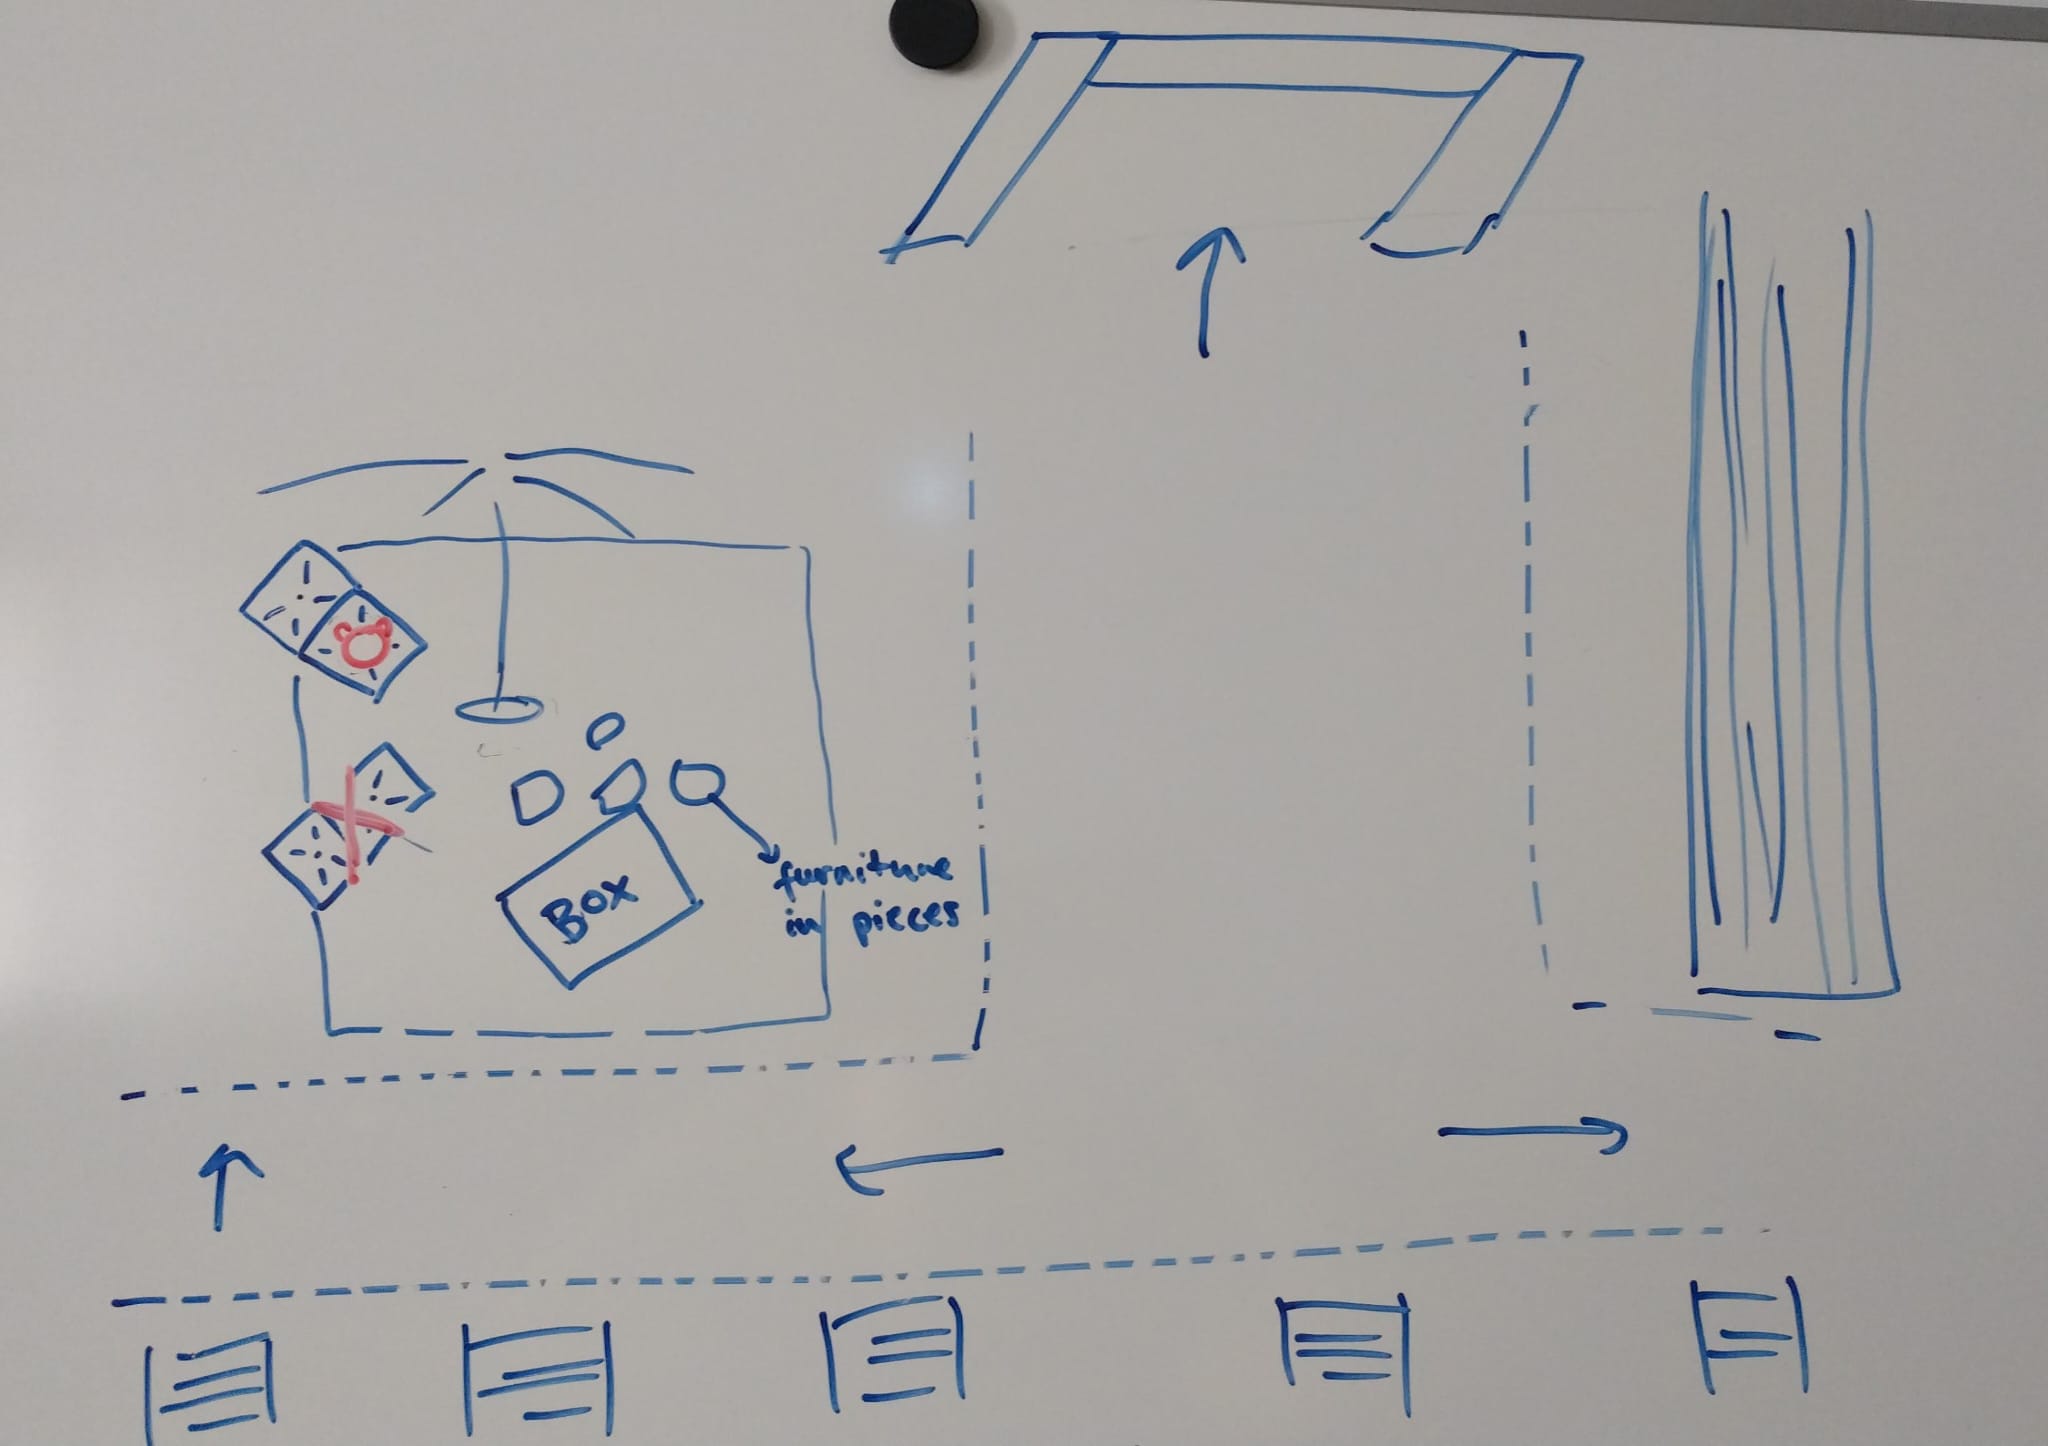 BOX
furniture
in pieces